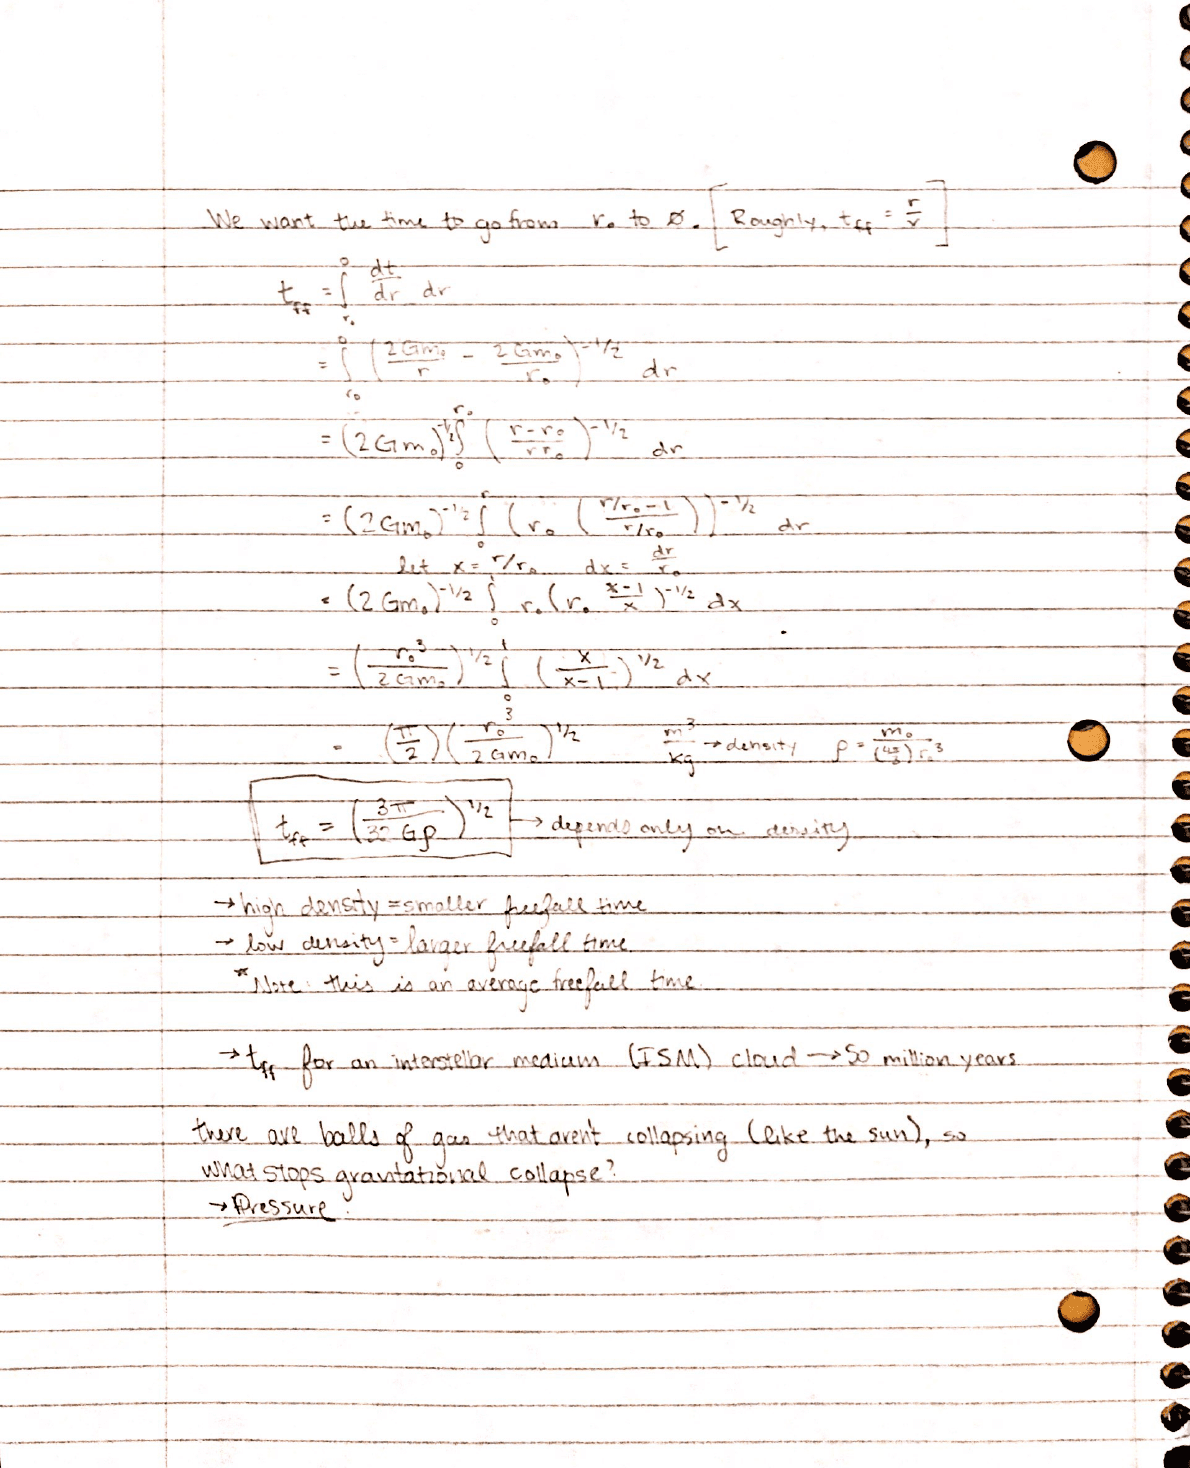 We want the time to go from r₀ to 0. [Roughly, t_ff = r/v]
t_ff = ∫_{r₀}^{0} dt/dr dr
= ∫_{r₀}^{0} (2Gm₀/r - 2Gm₀/r₀)^{-1/2} dr
= (2Gm₀)^{-1/2} ∫_{0}^{r₀} ((r-r₀)/(rr₀))^{-1/2} dr
= (2Gm₀)^{-1/2} ∫_{0}^{r} (r₀ ((r/r₀-1)/(r/r₀)))^{-1/2} dr
let x = r/r₀ dx = dr/r₀
= (2Gm₀)^{-1/2} ∫_{0}^{1} r₀ (r₀ (x-1)/x)^{-1/2} dx
= (r₀³/2Gm₀)^{1/2} ∫_{0}^{1} (x/(x-1))^{1/2} dx
= (π/2) (r₀³/2Gm₀)^{1/2} m³/kg → density ρ = m₀/((4π/3) r₀³)
t_ff = (3π/32Gρ)^{1/2} → depends only on density
→ high density = smaller freefall time
→ low density = larger freefall time
* Note: this is an average freefall time.
→ t_ff for an interstellar medium (ISM) cloud → 50 million years
there are balls of gas that aren't collapsing (like the sun), so
what stops gravitational collapse?
→ Pressure.